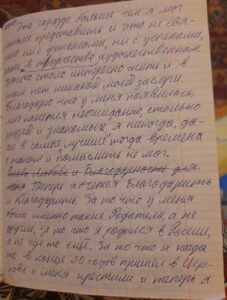 Это гораздо больше чем я мог
представить и это не свя-
зано ни с финансами, ни с успехами,
в творчестве художественном
просто стало интересно жить и в
этом нет никакой моей заслуги.
Благодарю что у меня появилось,
мне кажется неожиданно столько
друзей и знакомых, я никогда, да-
же в самые лучшие тогда времена
о таком и помыслить не мог.
Слава Любовь и Благодарность для
Теперь хочется Благодарить
и благодарить. За то что у меня
были именно такие Родители, а не
другие, за то что я родился в России,
а не где то ещё. За то что я когда
то, в конце 90 годов пришёл в Цер-
ковь и меня простили и теперь я